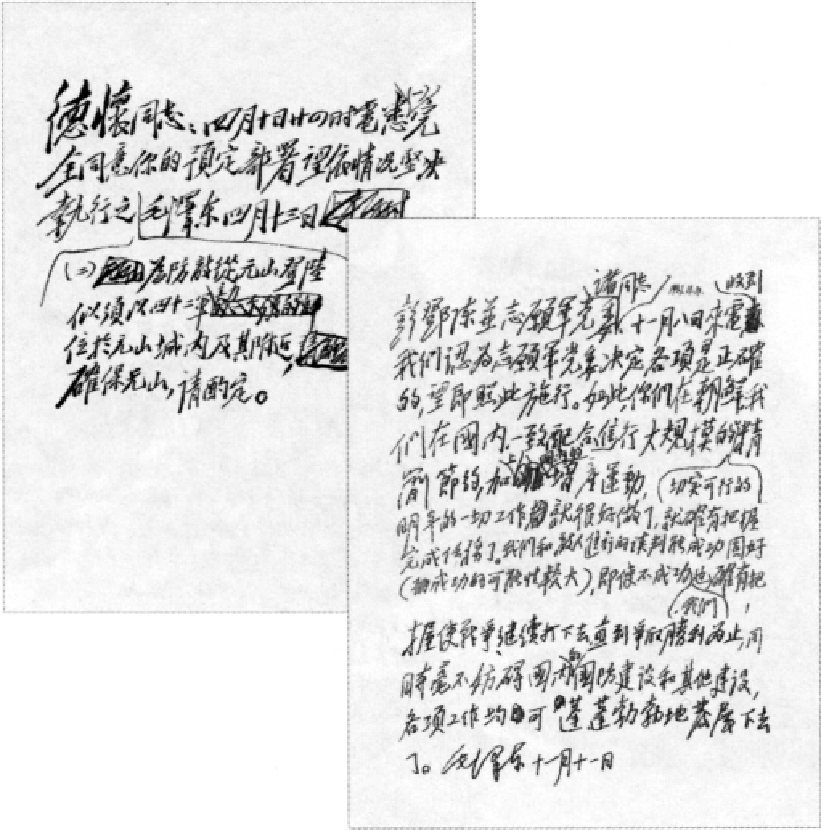 德懷同志：四月十日廿四时電悉完
全同意你的預定部署望依情况坚决
執行之 毛澤东四月十三日
(二) 為防敵從元山登陸
似須以四十二軍
位於元山城内及其附近，
確保元山，請酌定。
諸同志 收到
彭鄧陈並志願軍党委 十一月八日來電
我們認為志願軍党委决定各項是正確
的，望即照此施行。如此，你們在朝鮮我
們在國内一致配合進行大規模的精
简節約和增產運動，切实可行的
明年的一切工作就很好做了，就確有把握
完成任務了。我們和敵人進行的談判能成功固好
(和成功的可能性較大)，即使不成功也確有把
我們
握使戰爭繼續打下去直到爭取勝利為止，同
時毫不妨碍國内國防建設和其他建設，
各項工作均可蓬蓬勃勃地发展下去
了。毛澤东十一月十一日